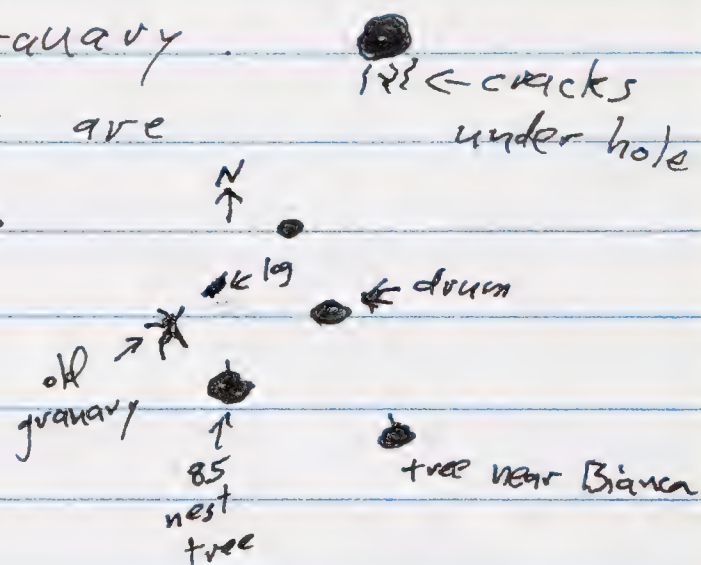 anary
{ξ} ← cracks
are
under hole
N
↑
← log
← drum
old
granary
85
nest
tree
tree near Bianca